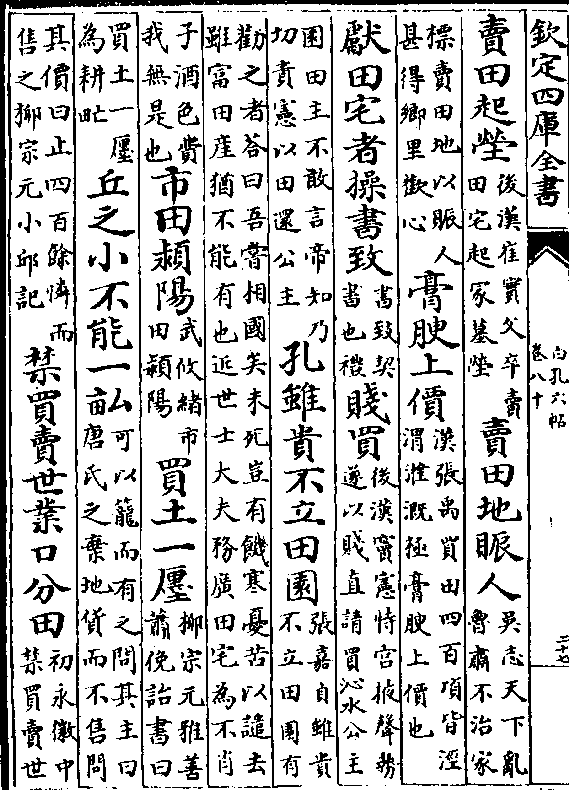 欽定四庫全書
白孔六帖
卷八十
二十七
賣田起塋後漢崔實父卒賣田宅起冢墓塋賣田地賑人吳志天下亂魯肅不治家
摽賣田地以賑人甚得鄉里歡心膏腴上價漢張禹買田四百頃皆涇渭淮溉極膏腴上價也
獻田宅者操書致書致契書也禮賤買後漢竇憲恃宮掖聲勢遂以賤直請買沁水公主
園田主不敢言帝知乃切責憲以田還公主孔雖貴不立田園張嘉自雖貴不立田園有
勸之者荅曰吾嘗相國矣未死豈有饑寒憂苦以譴去雖富田産猶不能有也近世士大夫務廣田宅為不肖
子酒色費我無是也市田潁陽武攸緒市田潁陽買土一㕓柳宗元雅善蕭俛詒書曰
買土一㕓為耕甿丘之小不能一畝可以籠而有之問其主曰唐氏之棄地貨而不售問
其價曰止四百餘憐而售之柳宗元小邱記禁買賣世業口分田初永徽中禁買賣世